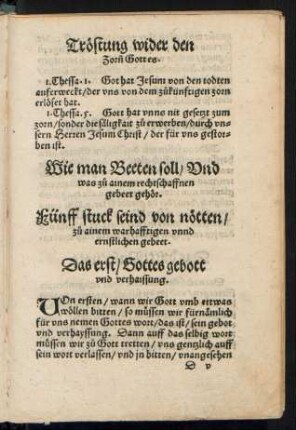 Tröstung wider den
Zorn Gottes.
1. Thessa. 1. Got hat Jesum von den todten
auferweckt / der vns von dem zůkünftigen zorn
erlöset hat.
1. Thessa. 5. Gott hat vnns nit gesetzt zum
zorn / sonder die säligkait zů erwerben / durch vn-
sern Herren Jesum Christ / der für vns gestor-
ben ist.
Wie man Beeten soll / Vnd
was zů ainem rechtschaffnen
gebeet gehöt.
Fünff stuck seind von nötten /
zů ainem warhafftigen vnnd
ernstlichen gebeet.
Das erst / Gottes gebott
vnd verhaissung.
VOn ersten / wann wir Gott vmb ettwas
wöllen bitten / so müssen wir fürnämlich
für vns nemen Gottes wort / das ist / sein gebot
vnd verhayssung. Dann auff das selbig wort
müssen wir zů Gott tretten / vns gentzlich auff
sein wort verlassen / vnd jn bitten / vnangesehen
D v